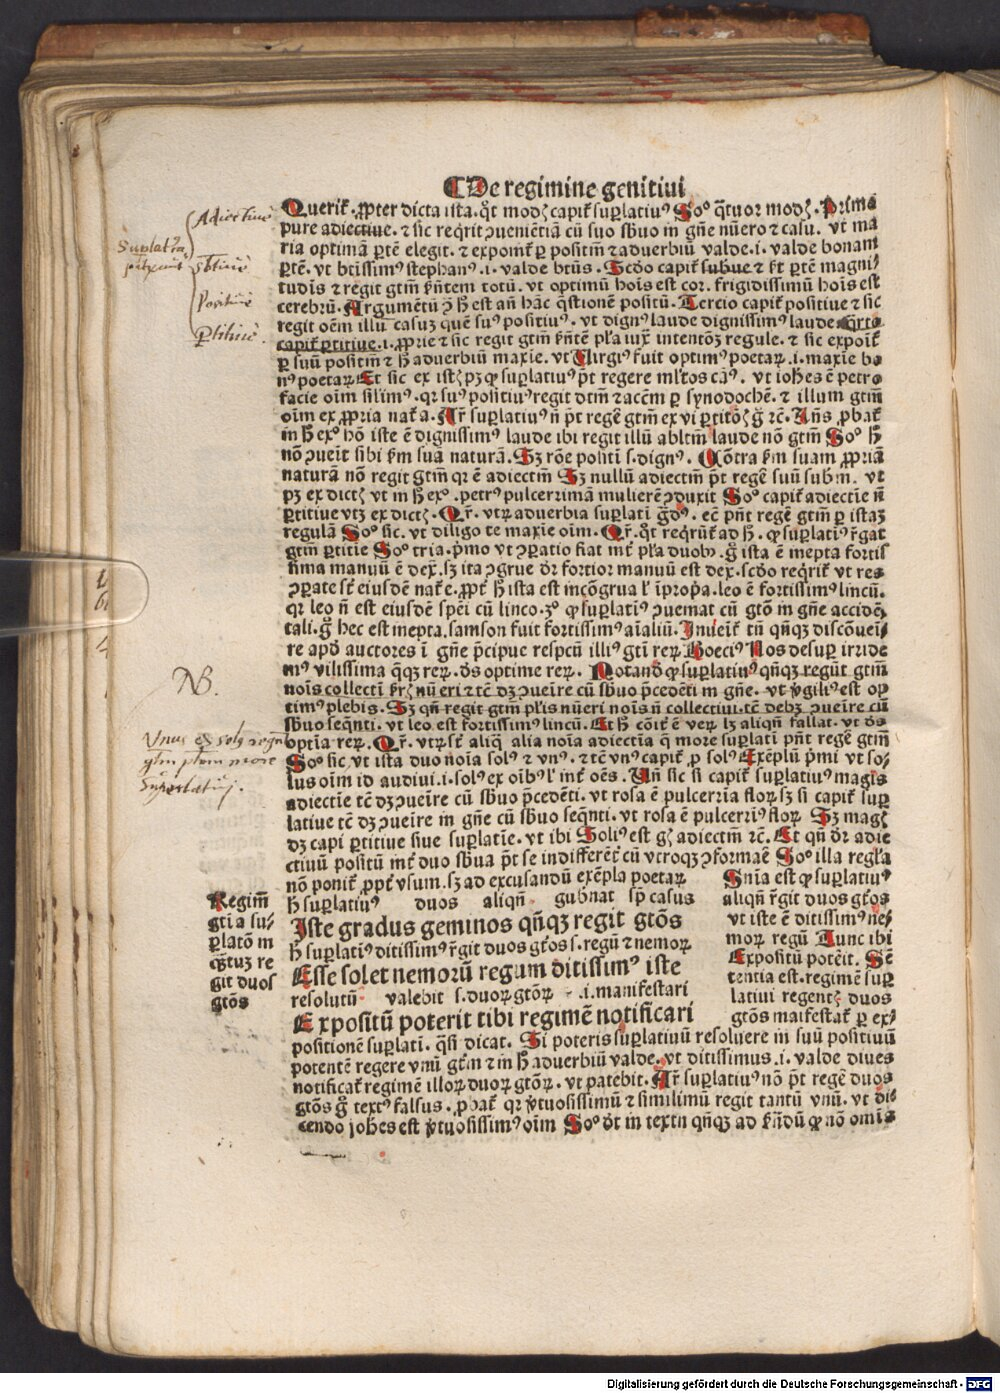 De regimine genitiui
Querit᷒ ꝓpter dicta ista. q̃t modꝭ capit᷒ suꝑlatiuꝰ Soᵒ q̃tuor modꝭ. Primo
pure adiectiue. ⁊ sic req̃rit ꝯueniẽtiã cũ suo sb̃uo in gñe nũero ⁊ casu. vt ma
ria optimã ꝑtẽ elegit. ⁊ exponit᷒ ꝑ positiũ ⁊ aduerbiũ valde .i. valde bonam
ꝑtẽ. vt bt̃issimꝰ stephanꝰ .i. valde bt̃us. Scd̃o capit᷒ subue ⁊ sic ꝑtẽ magni
tudis ⁊ regit gtm̃ sñtem totũ. vt optimũ hoĩs est cor. frigidissimũ hoĩs est
cerebrũ. Argumẽtũ ꝯ H̃ est añ hãc q̃stionem positũ. Tercio capit᷒ positiue ⁊ sic
regit oẽm illũ casuꝫ quẽ suꝰ positiuꝰ. vt dignꝰ laude dignissimꝰ laude. Q̃rto
capit᷒ ꝑtitiue .i. ꝓprie ⁊ sic regit gtm̃ sñtẽ pl̃a iuxᵗ intentõꝫ regule. ⁊ sic expoĩt᷒
ꝑ suũ positiũ ⁊ H̃ aduerbiũ maxie. vt Virgiꝰ fuit optimꝰ poetaꝝ .i. maxie bo
nꝰ poetaꝝ Et sic ex istꝭ pꝫ ꝙ suꝑlatiuꝰ p̃t regere ml̃tos cãꝰ. vt ioh̃es ẽ petro
facie oĩm sil̃imꝰ. qꝛ suꝰ positiuꝰ regit dtm̃ ⁊ acc̃m ꝑ synodochẽ. ⁊ illum gtm̃
oĩm ex ꝓpria nat᷒a. Ar̃ suꝑlatiuꝰ ñ p̃t regẽ gtm̃ ex vi ꝑtitõꝭ g̊ ⁊c̃. Añs ꝓbat᷒
in H̃ exᵒ hõ iste ẽ dignissimꝰ laude ibi regit illũ abltm̃ laude nõ gtm̃ Soᵒ H̃
nõ ꝯueit sibi s̃m suã naturã. Sꝫ rõe positi s. dignꝰ. Cõtra s̃m suam ꝓpriã
naturã nõ regit gtm̃ qꝛ ẽ adiectm̃ Sꝫ nullũ adiectm̃ p̃t regẽ suũ subm̃. vt
pꝫ ex dictꝭ vt in H̃ exᵒ. petrꝰ pulcerrimã mulierẽ ꝯduxit Soᵒ capit᷒ adiectie ñ
ꝑtitiue vtꝫ ex dictꝭ. Qr̃. vtꝝ aduerbia suꝑlati g̃dꝰ. ec̃ pñt regẽ gtm̃ ꝑ istaꝫ
regulã Soᵒ sic. vt diligo te maxie oĩm. Qr̃. q̃t req̃runt᷒ ad H̃. ꝙ suꝑlatiꝰ r̃gat
gtm̃ ꝑtitie Soᵒ tria. p̃mo vt ꝯꝑatio fiat int̃ pl̃a duobꝰ. g̊ ista ẽ inepta fortis
sima manuũ ẽ dex̃. sꝫ ita ꝯgrue dr̃ fortior manuũ est dex̃. scd̃o req̃rit᷒ vt res
ꝯꝑate sc̃ eiusdẽ nat᷒e. ꝓpt᷒ H̃ ista est incõgrua l᷒ iprop̃a. leo ẽ fortissimꝰ lincũ.
qꝛ leo ñ est eiusdẽ spẽi cũ linco. 3ᵒ ꝙ suꝑlatiꝰ ꝯueniat cũ gtõ in gñe accidẽ
tali. g̊ hec est inepta. samson fuit fortissimꝰ aĩaliũ. Inueit᷒ tñ qñqꝫ discõuei
re apõ auctores i gñe p̃cipue respcũ illiꝰ gt̃i reꝝ Boeciꝰ Nos desuꝑ irride
mꝰ vilissima q̃qꝫ reꝝ. ds optime reꝝ. Notand̃ ꝙ suꝑlatiuꝰ qñqꝫ regũt gtm̃
nois collecti sĩꝭ nũeri ⁊ tẽ dꝫ ꝯueĩre cũ sb̃uo p̃cedẽti in gñe. vt v̓giliꝰ est op
timꝰ plebis. Sꝫ qñ regit gtm̃ pl̃is nũeri nois ñ collectiui. tẽ debꝫ ꝯueire cũ
sb̃uo seq̃nti. vt leo est fortissimꝰ lincũ. Et H̃ cõit᷒ ẽ veꝝ lꝫ aliqñ fallat. vt ds
optĩa reꝝ. Qr̃. vtꝝ st᷒ aliq̃ alia noĩa adiectĩa q̃ more suꝑlati pñt regẽ gtm̃
Soᵒ sic, vt ista duo noĩa solꝰ ⁊ vnꝰ. ⁊ tẽ vnꝰ capit᷒ ꝓ solꝰ Exẽplũ p̃mi vt so
lus oĩm id audiui .i. solꝰ ex oĩbꝰ l᷒ int᷒ oẽs. Vñ sic si capit᷒ suꝑlatiuꝰ magis
adiectie tẽ dꝫ ꝯueĩre cũ sb̃uo p̃cedẽti. vt rosa ẽ pulcerrĩa floꝝ sꝫ si capit᷒ suꝑ
latiue tẽ dꝫ ꝯueire in gñe cũ sb̃uo seq̃nti. vt rosa ẽ pulcerriꝰ floꝝ Sꝫ magꝭ
dꝫ capi ꝑtitiue siue suꝑlatie. vt ibi Soliꝰ est gꝭ adiectm̃ ⁊c̃. Et qñ dr̃ adie
ctiuũ positũ int̃ duo sb̃ua p̃t se indifferẽt᷒ cũ vtroqꝫ ꝯformaẽ Soᵒ illa regl̃a
nõ ponit᷒ ꝓpt᷒ vsum. sꝫ ad excusandũ exẽpla poetaꝝ
H̃ suꝑlatiuꝰ duos aliqñ gubnat sp̃ casus
Iste gradus geminos qñqꝫ regit gtõs
H̃ suꝑlatiꝰ ditissimꝰ r̃git duos gt̃os s. regũ ⁊ nemoꝝ
Esse solet nemorũ regum ditissimꝰ iste
resolutũ valebit s. duoꝝ gtõꝝ .i. manifestari
Expositũ poterit tibi regimẽ notificari
Snĩa est ꝙ suꝑlatiuꝰ
aliqñ r̃git duos gt̃os
vt iste ẽ ditissimꝰ ne
moꝝ regũ Tunc ibi
Expositũ potẽit. Sẽ
tentia est. regimẽ suꝑ
latiui regentꝭ duos
gtõs maifestat᷒ ꝑ ex
positionẽ suꝑlati. q̃si dicat. Si poteris suꝑlatiuũ resoluere in suũ positiuũ
potentẽ regere vnũ gt̃m ⁊ in H̃ aduerbiũ valde. vt ditissimus .i. valde diues
notificat᷒ regimẽ illoꝝ duoꝝ gtõꝝ. vt patebit. Ar̃ suꝑlatiuꝰ nõ p̃t regẽ duos
gtõs g̊ textꝰ falsus. ꝓbat᷒ qꝛ v̓tuosissimũ ⁊ similimũ regit tantũ vnũ. vt di
cendo joh̃es est v̓tuosissimꝰ oĩm Soᵒ dt in textu qñqꝫ ad sñdũ ꝙ nõ omĩs
Regim̃
gti a su
ꝑlatõ in
q̃ꝫtuꝫ re
git duos
gtõs
Adiectiue
Suplat᷒a
sbtiue
Positiue
Ptitiue.
NB.
Vnus et solꝰ regũt
gtm ptm more
Superlatiuj.
Digitalisierung gefördert durch die Deutsche Forschungsgemeinschaft - DFG